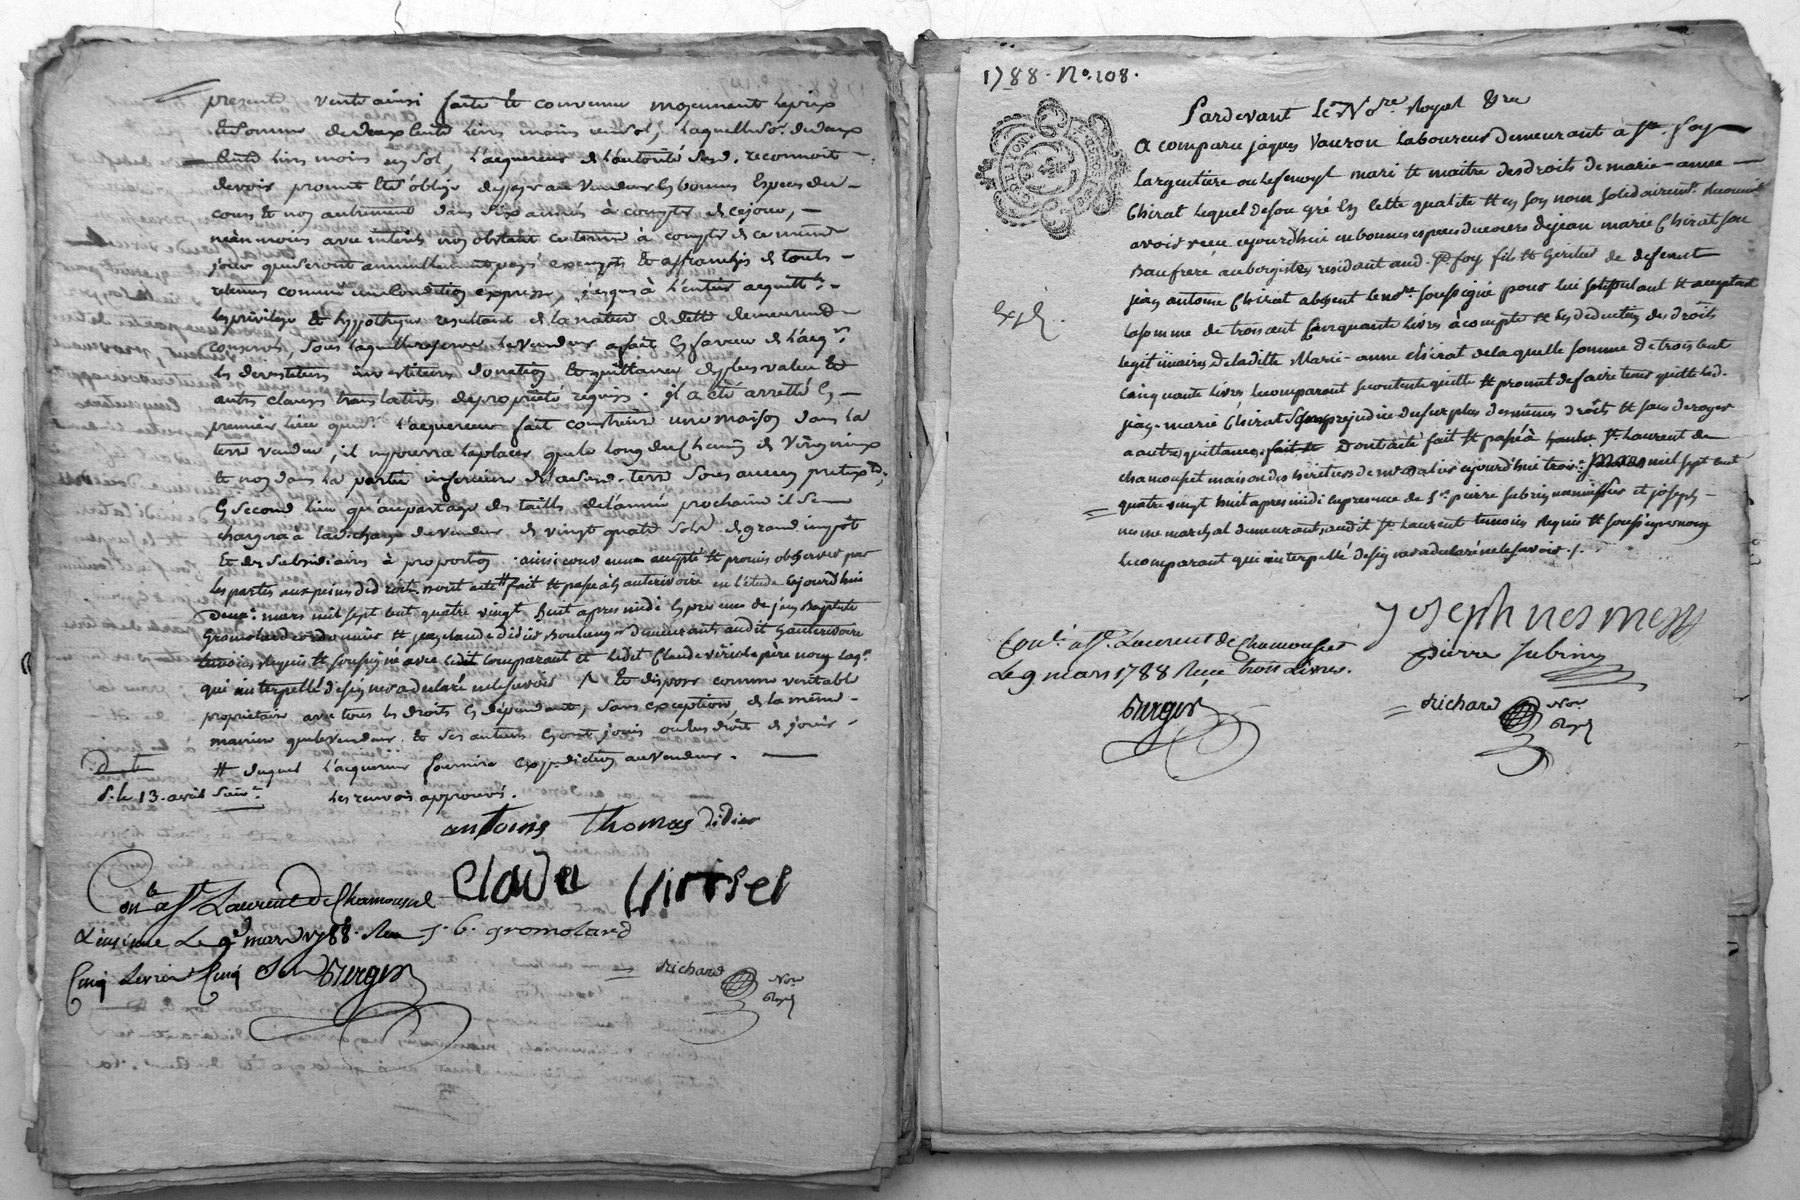 presente vente ainsi faite et convenue moyennant le prix
et somme de deux cents livres moins un sol, laquelle so. de deux
cents livres moins un sol, l'acquereur de l'autorité sus d. reconnoit
devoir promet et s'oblige de payer au vendeur en bonnes especes du
cours et non autrement dans dix années à compter de ce jour,
néanmoins avec intérêts nonobstant ce terme à compter de ce même
jour qui seront annuellement payés exempts et affranchis de toutes
retenues comme une condition expresse, jusques à l'entier acquitt.
les privilege et hypotheque resultant de la nature de dette demeurant
conservés, sous laquelle reserve le vendeur a fait en faveur de l'acq.r
les devestiture investiture donation et quittance de plus value et
autres clauses translatives de propriété requises. il a été arretté en
premier lieu que si l'acquereur fait construire une maison dans la
terre vendue, il ne pourra la placer que le long du chemin de
et non dans la partie inferieure de la susd. terre sous aucun pretexte;
En second lieu qu'au partage des tailles de l'année prochaine il se
chargera à la décharge du vendeur de vingt quatre sols de grand impôt
et des subsidiaires à proportion. ainsi convenu accepté et promis observer par
les parties aux peines de droit. dont acte # fait et passé à hauterivoire en l'étude cejourd'hui
deux mars mil sept cent quatre vingt huit apres midi en presence de jean Baptiste
Gromolard cordonnier et jean claude didier Boulanger demeurants audit hauterivoire
temoins requis et soussignés avec ledit comparant et ledit Claude père non l'acq.r
qui interpellé de signer a declaré ne le savoir /\ et disposer comme veritable
proprietaire avec tous les droits en dépendant, sans exception, de la même
maniere que le vendeur et ses auteurs en ont joui ou eu droit de jouir.
# duquel l'acquereur fournira expedition au vendeur.
d. le 13. avril suiv.t les renvois approuvés.
antoine thomas didier
Claude
Con.lé a St. Laurent De Chamousset
Le 9 mars 1788. Reçu j. b. gromolard
Cinq Livres Cinq Sols Berger
Richard No.re
Royal
1788. No. 108.
Pardevant Le No.re Royal &ra
A comparu jaques Vauron laboureur demeurant à Ste. foy
Largentiere mari et maitre des droits de marie-anne
Chirat lequel de son gré en cette qualité et en son nom solidairement reconnoit
avoir reçu cejourd'hui en bonnes especes du cours de jean marie Chirat son
Beaufrere aubergiste residant aud. Ste foy fils et heritier de defunt
jean antoine Chirat absent le no.re soussigné pour lui stipulant et acceptant
la somme de trois cent cinquante livres à compte et en deduction des droits
legitimaires de ladite Marie-anne chirat de laquelle somme de trois cent
cinquante livres le comparant se contente quitte et promet de faire tenir quitte led.
jean-marie Chirat sans prejudice du surplus des mêmes droits et sans deroger
a autre quittance. Dont acte fait et passé à St. Laurent de
chamousset maison des heritiers de cejourd'hui trois mars mil sept cent
quatre vingt huit apres midi en presence de S.r pierre Subrin et joseph
nesme marechal demeurants audit St. Laurent temoins requis et soussignés non
le comparant qui interpellé de signer a declaré ne le savoir ./.
Exp.
joseph nesme
pierre Subrin
Con.lé a St. Laurent de Chamousset
Le 9 mars 1788 Reçu trois Livres.
Berger
Richard No.re
Royal